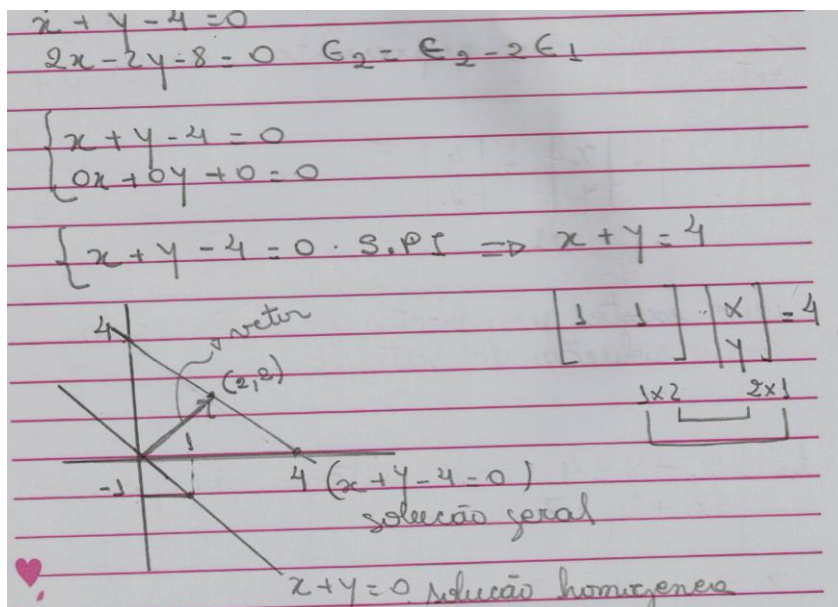 x + y - 4 = 0
2x - 2y - 8 = 0 E2 = E2 - 2E1
x + y - 4 = 0
0x + 0y + 0 = 0
x + y - 4 = 0 . S.PI => x + y = 4
[1 1] . [x y] = 4
1x2 2x1
4
vetor
(2,2)
1
-1
4 (x + y - 4 = 0)
solução geral
x + y = 0 solução homogenea